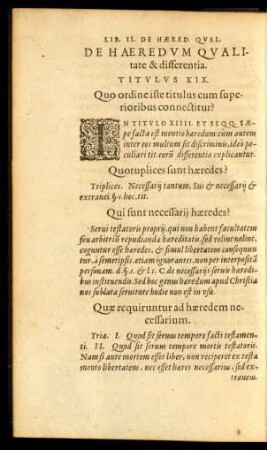 LIB. II. DE HÆRED. QVAL.
DE HAEREDVM QVALI
tate & differentia.
TITVLVS XIX.
Quo ordine iste titulus cum supe
rioribus connectitur?
IN TITVLO XIIII. ET SEQQ. SÆ-
pe facta est mentio hæredum: cùm autem
inter eos multum sit discriminis, ideò pe
culiari tit. eorũ differentia explicantur.
Quotuplices sunt hæredes?
Triplices. Necessarij tantum, Sui & necessarij &
extranei. §. 1. hoc. tit.
Qui sunt necessarij hæredes?
Serui testatoris proprij, qui non habent facultatem
seu arbitriũ repudianda hæreditatis, sed velint nolint,
coguntur esse hæredes, & simul libertatem consequun
tur, à semetipsis, etiam ignorantes, non per interpositã
personam. d. §. 1. & l. 1. C. de necessarijs seruis hæredi
bus instituendis. Sed hoc genus hæredum apud Christia
nos sublata seruitute hodie non est in vsu.
Quæ requiruntur ad hæredem ne
cessarium.
Tria. I. Quod sit seruus tempore facti testamen
ti. II. Quod sit seruus tempore mortis testatoris.
Nam si ante mortem esset liber, non reciperet ex testa
mento libertatem, nec esset hæres necessarius, sed ex-
traneus.